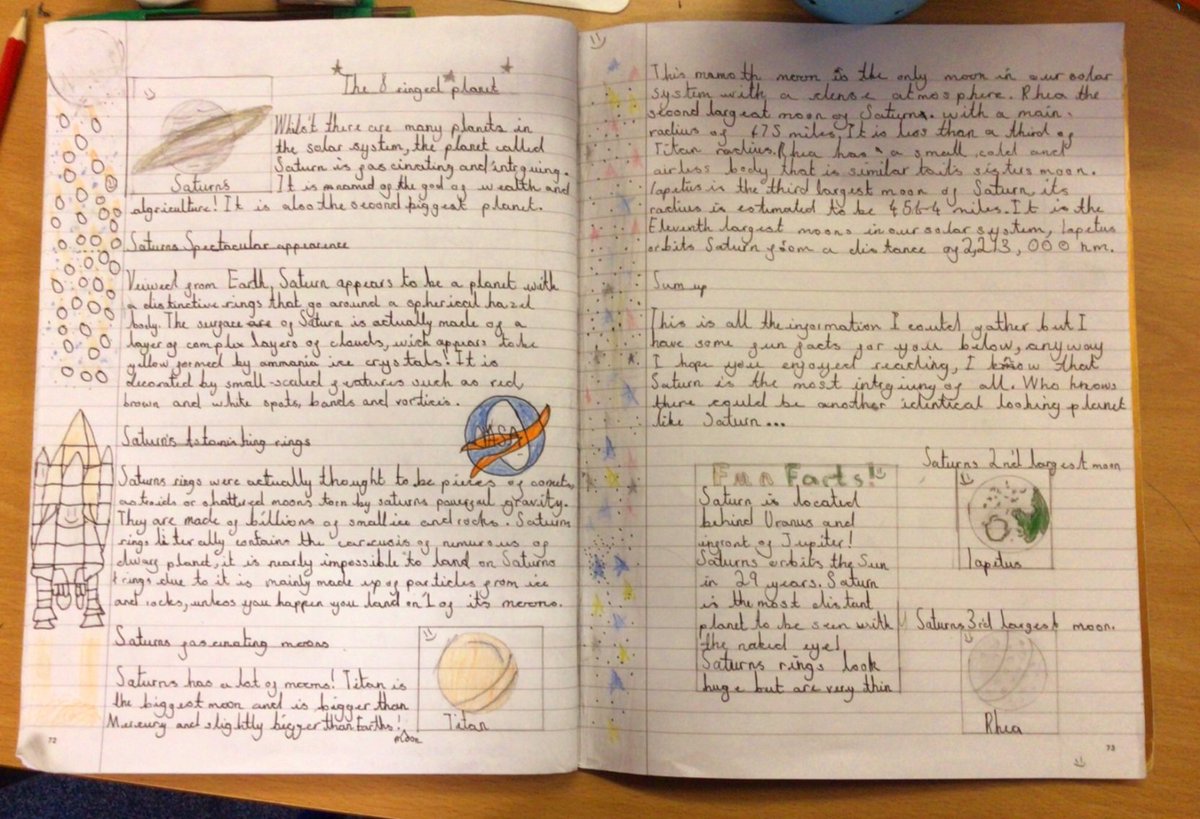 The 8 ringed planet
Whilst there are many planets in
the solar system, the planet called
Saturn is fascinating and intriguing.
Saturns
It is named of the god of wealth and
algriculture! It is also the second biggest planet.
Saturns Spectacular appearence
Veiwed from Earth, Saturn appears to be a planet with
a distinctive rings that go around a spherical hazel
body. The surface are of Saturn is actually made of a
layer of complex layers of clouds, wich appears to be
yellow formed by ammania ice crystals! It is
decorated by small-scaled features such as red
brown and white spots, bands and vorticis.
NASA
Saturn's Astonishing rings
Saturns rings were actually thought to be pieces of comets,
astroids or shattered moons torn by saturns powerful gravity.
They are made of billions of small ice and rocks. Saturns
rings literally contains the of
dwarf planet, it is nearly impossible to land on Saturns
rings due to it is mainly made up of particles from ice
and rocks, unless you happen you land on 1 of its moons.
Saturns fascinating moons
Saturns has a lot of moons! Titan is
the biggest moon and is bigger than
Mercury and slightly bigger than Earths!
moon
Titan
72
This mamoth moon is the only moon in our solar
system with a dense atmosphere. Rhea the
second largest moon of Saturns. with a main
radius of 475 miles. It is less than a third of
Titan radius. Rhea has a small, cold and
airless body that is similar to its sistus moon.
Iapetus is the third largest moon of Saturn its
radius is estamated to be 456.4 miles. It is the
Eleventh largest moons in our solar system, Iapetus
orbits Saturn from a distance of 2,213,000 hm.
Sum up
This is all the information I could gather but I
have some fun facts for you below, anyway
I hope you enjoyed reading, I know that
Saturn is the most intgiung of all. Who knows
there could be another identical looking planet
like Saturn...
Fun Facts!
Saturn is located
behind Uranus and
infront of Jupiter!
Saturns orbits the Sun
in 29 years. Saturn
is the most distant
planet to be seen with
the naked eye!
Saturns rings look
huge but are very thin
Saturns 2nd largest moon
Iapetus
Saturns 3rd largest moon.
Rhea
73